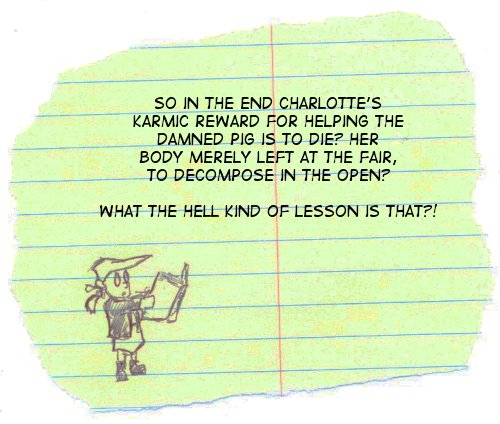 SO IN THE END CHARLOTTE'S
KARMIC REWARD FOR HELPING THE
DAMNED PIG IS TO DIE? HER
BODY MERELY LEFT AT THE FAIR,
TO DECOMPOSE IN THE OPEN?
WHAT THE HELL KIND OF LESSON IS THAT?!